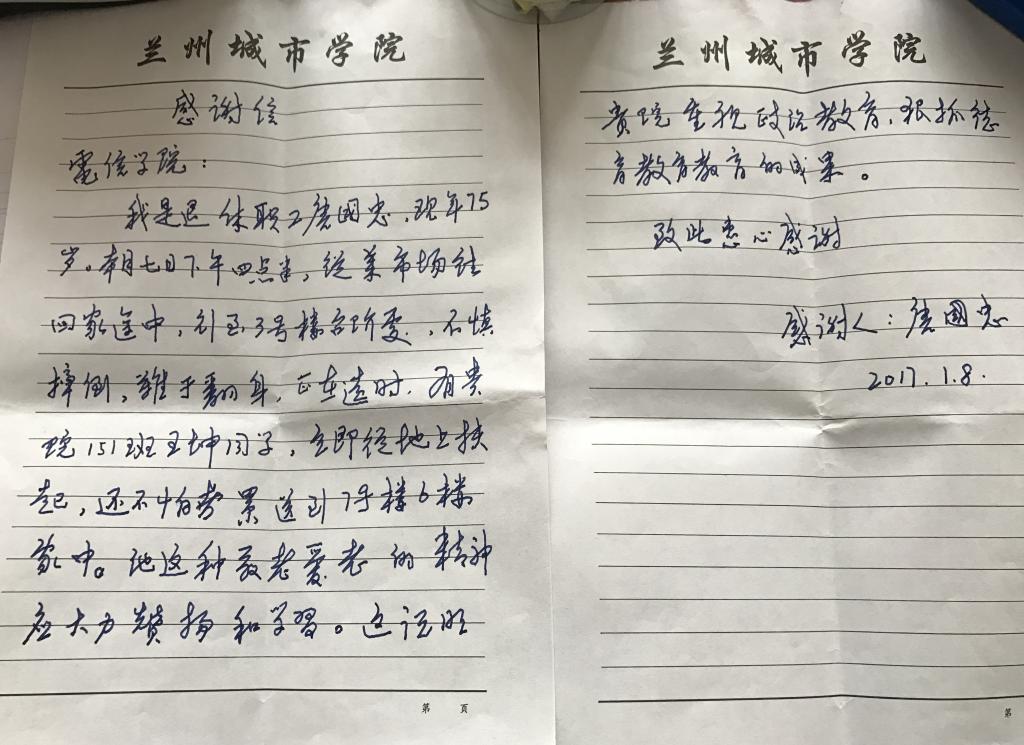 兰州城市学院
感谢信
電信学院：
我是退休职工唐國忠，现年75
岁。本月七日下午四点半，從菜市场往
回家途中，行至3号楼台阶处，不慎
摔倒，難于翻身，正在这时，有贵
院151班王坤同学，立即從地上扶
起，还不怕劳累送到7号楼6楼
家中。他这种敬老爱老的精神
应大力赞扬和学習。这说明
第 頁
兰州城市学院
贵院重视政治教育，狠抓德
育教育教育的成果。
致此衷心感谢
感谢人：唐國忠
2017.1.8.
第